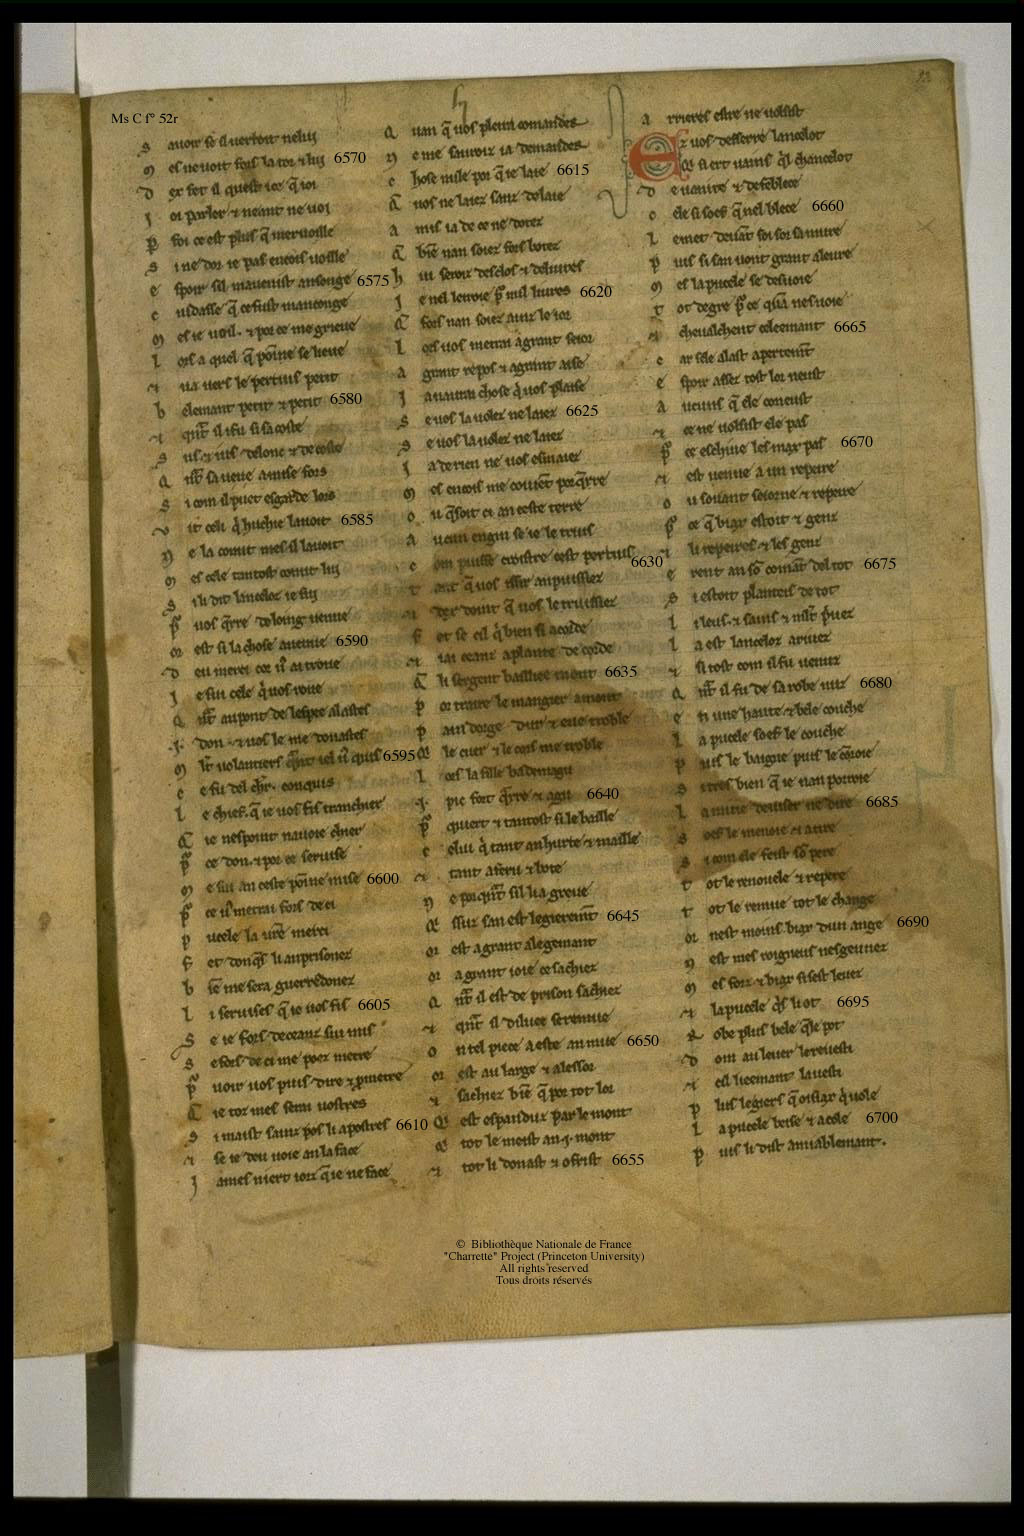 Ms C f° 52r
s auoir se il uerroit nelui
m es ne uoit fors la tor ⁊ lui 6570
d ex fet il quest ice q̄ ioi
j oi parler ⁊ neant ne uoi
p foi ce est plus q̄ meruoille
s i ne dor ie pas encois uoille
e spoir sil mauenist an songe 6575
c uidasse q̄ ce fust mançonge
m es ie ueil ⁊ por ce me grieue
l ors a quel q̄ poinne se lieue
⁊ ua uers le pertuis petit
b elemant petit ⁊ petit 6580
⁊ qn̄t il i fu si sacoste
s us ⁊ ius de lonc ⁊ de coste
q n̄t sa ueue a mise fors
s i com il puet esgarde lors
v it celi q̄ huchie lauoit 6585
n e la conut mes il la uoit
m es cele tantost conut lui
s i li dit lancelot ie sui
p̄ uos q̄rre de loing uenue
or est si la chose auenue 6590
d eu merci cor us ai troue
j e sui cele q̄ uos roue
q n̄t au pont de lespee alastes
.j. don ⁊ uos le me donastes
m lt uolantiers qn̄t iel us quis 6595
c e fu del chr̄. conquis
l e chief. q̄ ie uos fis tranchier
q̄ ie nes point nauoie chier
p̄ ce don. ⁊ por ce seruise
m e sui an ceste poinne mise 6600
p̄ ce us metrai fors de ci
p ucele la ur̄e merci
f et donq̄s li anprisonez
b n̄ me sera guerredonez
l i seruises q̄ ie uos fis 6605
s e ie fors de ceanz sui mis
s e fors de ci me poez metre
p̄ uoir uos puis dire ⁊ p̄metre
q̄ ie toz mes serai uostres
s i maist sainz pos li apostres 6610
⁊ se ie deu uoie an la face
j ames niert iorz q̄ ie ne face
q uan q̄ uos pleira comandez
n e me sauroiz ia demandez
c hose nule por q̄ ie laie 6615
q̄ uos ne laiez sanz delaie
a mis ia de ce ne dotez
q̄ biē nan soiez fors botez
h ui seroiz desclos ⁊ deliures
j e nel leiroie p̄ mil liures 6620
q̄ fors nan soiez ainz le ior
l ors uos metrai a grant seior
a grant repos ⁊ a grant aise
j a naurai chose q̄ uos plaise
s e uos la uolez ne laiez 6625
s e uos la uolez ne laiez
j a de rien ne uos esmaiez
m es encois me couiēt porq̄rre
o u q̄ soit ci an ceste terre
a ucun engin se ie le truis
c om puisse croistre cest pertuis 6630
t ant q̄ uos issir an puissiez
⁊ dex doint q̄ uos le truissiez
f et se cil q̄ bien si acorde
⁊ iai ceanz a plante de corde
q̄ li sergent baillee mont 6635
p or traire le mangier amont
p ain dorge dur ⁊ eue troble
q̄ le cuer ⁊ le cors me troble
l ors la fille bademagu
.j. pic fort q̄rre ⁊ agu 6640
p̄ quiert ⁊ tantost si le baille
c elui q̄ tant an hurte ⁊ maille
⁊ tant a feru ⁊ bote
n e porqn̄t sil li a greue
q̄ issuz san est legieremt̄ 6645
or est a grant alegemant
or a grant ioie ce sachiez
q n̄t il est de prison sachiez
⁊ qn̄t il diluec se remue
o u tel piece a este an mue 6650
or est au large ⁊ a lessor
⁊ sachiez biē q̄ por tot lor
q̄ est espanduz par le mont
q̄ tot le meist an .j. mont
⁊ tot li donast ⁊ ofrist 6655
a rrieres estre ne uolsist
E z uos desserre lancelot
q̄ si ert uains q̄l chancelot
d e uanite ⁊ de feblece
c ele si soef q̄ nel blece 6660
l e met deuāt soi sor sa mure
p uis si san uont grant aleure
m es la pucele se desuoie
t ot de gre p̄ ce quā nes uoie
⁊ cheualchent celeemant 6665
c ar sele alast apertemt̄
e spoir assez tost lor neust
a ucuns q̄ ele coneust
⁊ ce ne uolsist ele pas
p̄ ce eschiue les max pas 6670
⁊ est uenue a un repeire
o u souant seiorne ⁊ repeire
p̄ ce q̄ biax estoit ⁊ genz
⁊ li repeires ⁊ les genz
e rent an sō comāt del tot 6675
s i estoit planteis de tot
l i leus ⁊ sains ⁊ mlt p̄uez
l a est lancelot ariuez
⁊ si tost com il fu uenuz
q n̄t il fu de sa robe nuz 6680
e n une haute ⁊ bele couche
l a pucele soef le couche
p uis le baigne puis le cōroie
s i tres bien q̄ ie nan porroie
l a mitie deuiser ne dire 6685
s oef le menoie ⁊ atire
s i com ele feist sō pere
t ot le renouele ⁊ repere
t ot le remue tot le change
or nest moins biax dun ange 6690
n est mes roigneus nesgeunez
m es forz ⁊ biax si sest leuez
⁊ la pucele q̄s li ot 6695
r obe plus bele q̄le pot
d om au leuer le reuesti
⁊ cil lieemant la uesti
p lus legiers q̄ oisiax q̄ uole
l a pucele beise ⁊ acole 6700
p uis li dist amiablemant.
© Bibliothèque Nationale de France
"Charrette" Project (Princeton University)
All rights reserved
Tous droits réservés